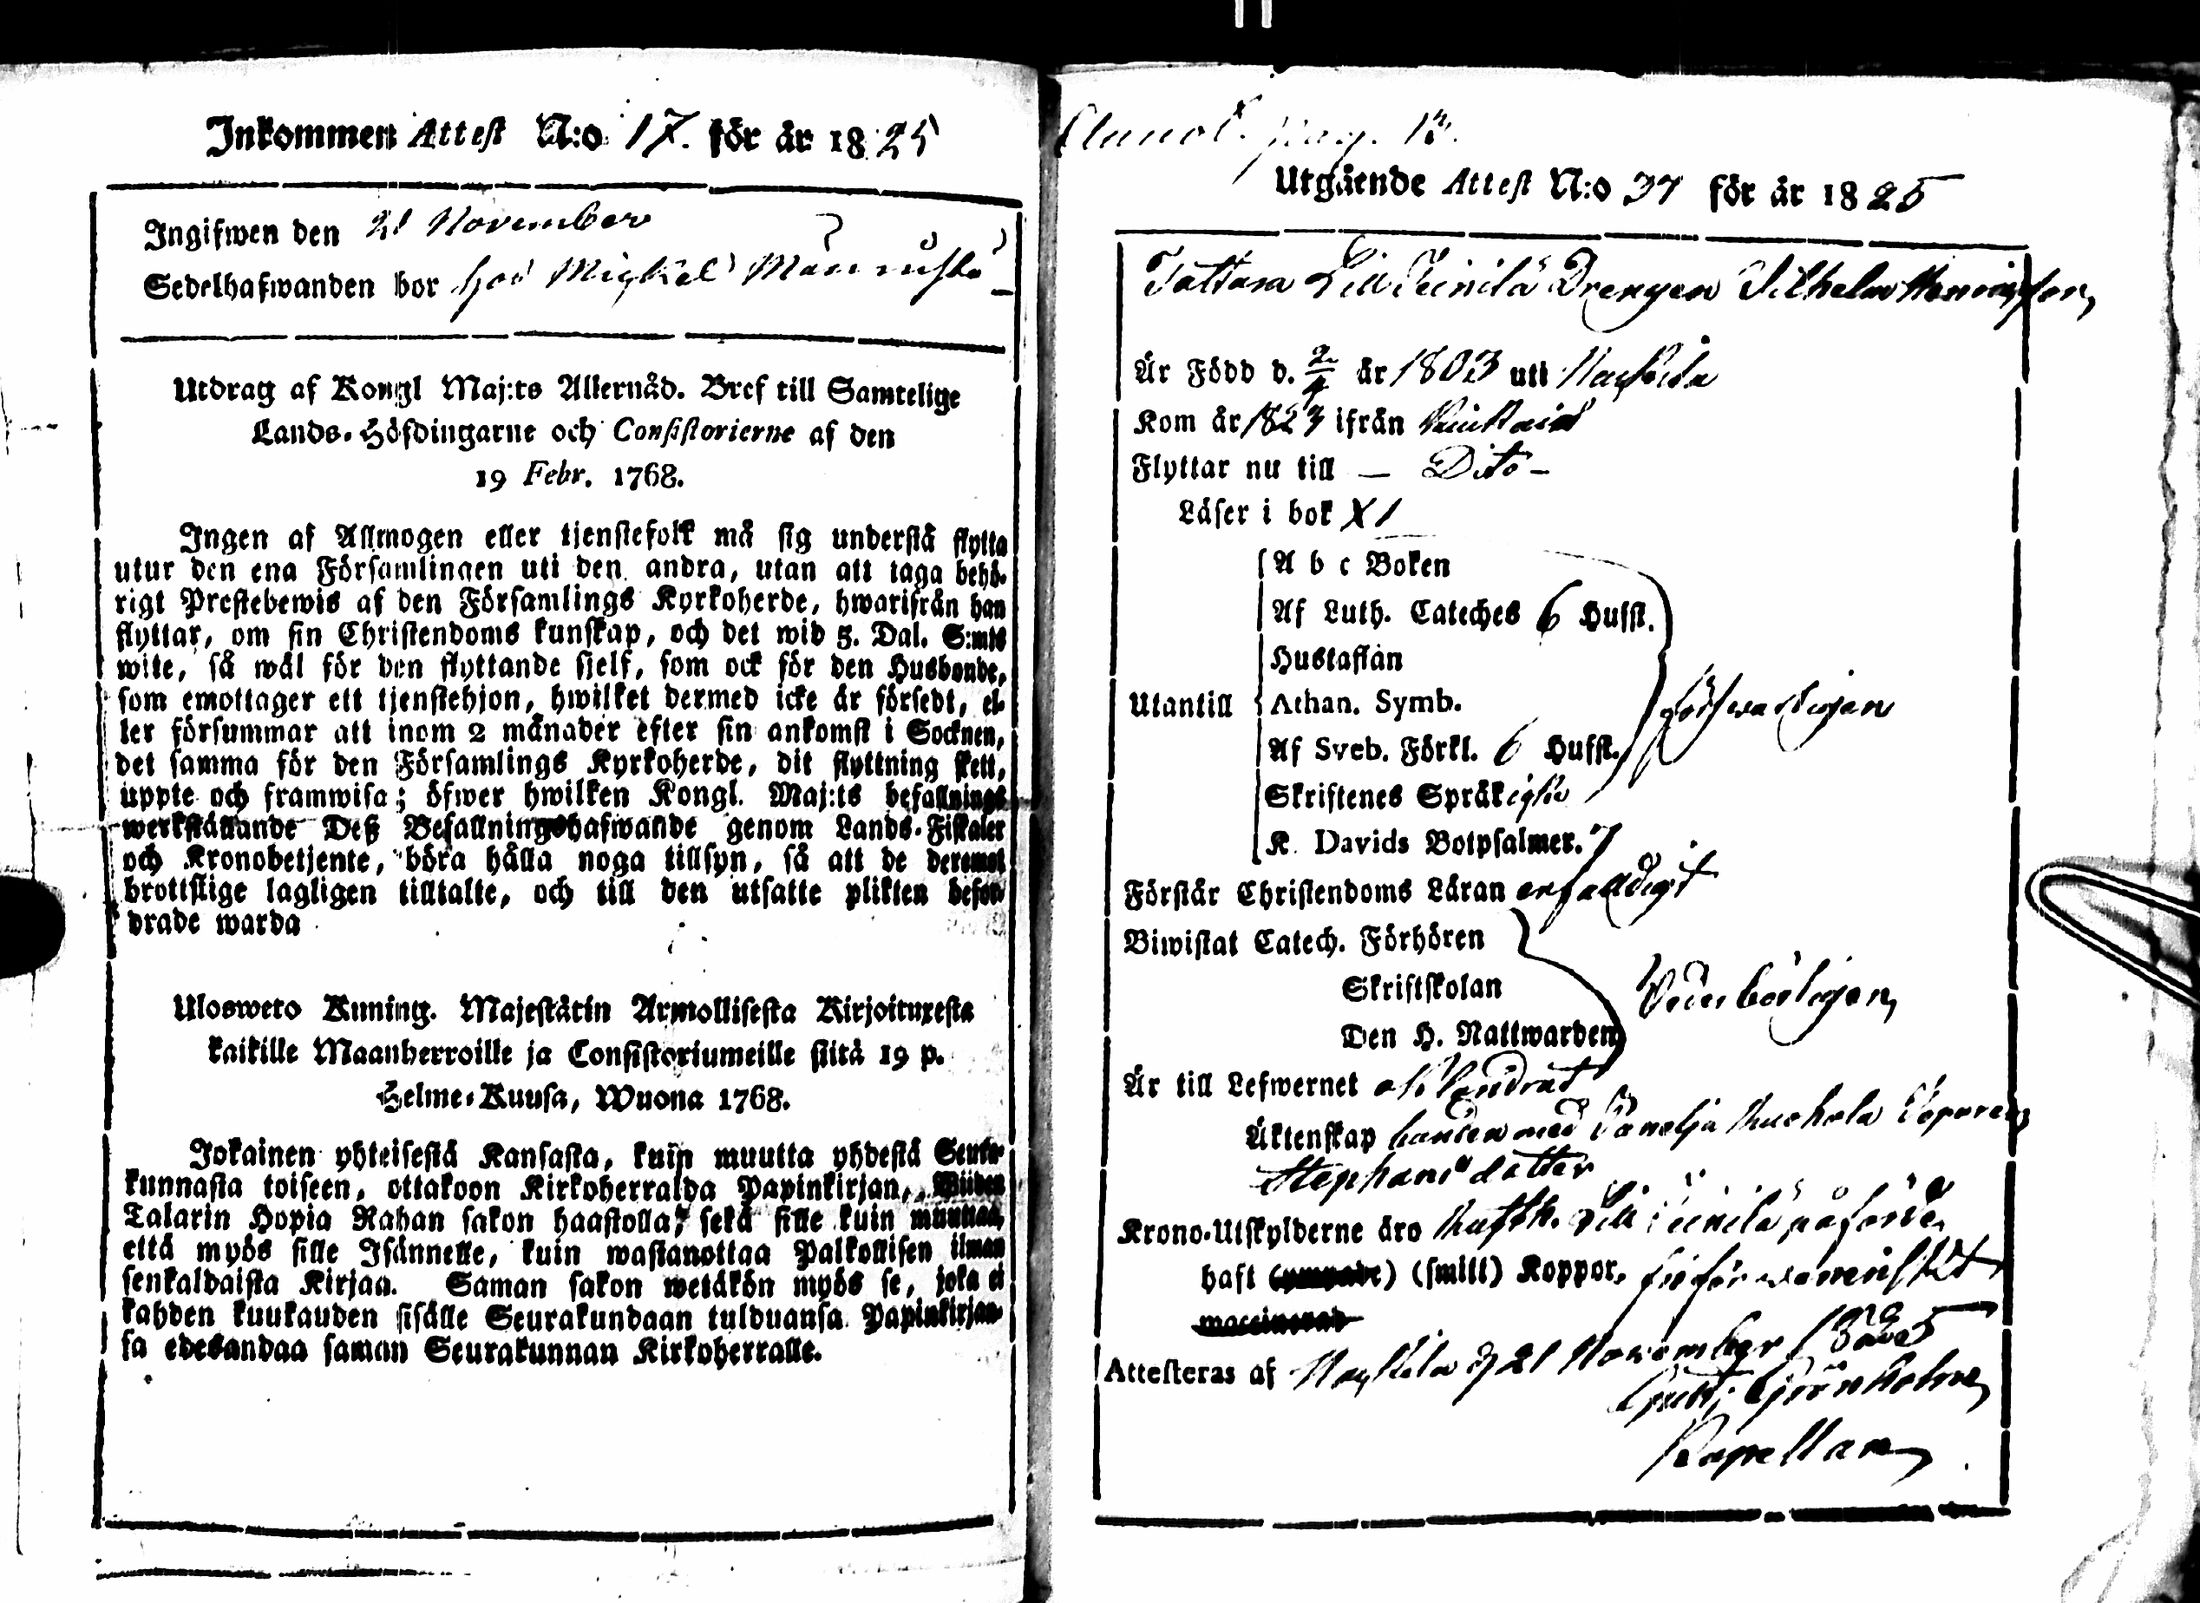 Inkommen Attest N:o 17. för år 1825
Ingifwen den 21 November
Sedelhafwanden bor hos Mickel
Utdrag af Kongl Maj:ts Allernåd. Bref till Samtelige
Lands-Höfdingarne och Consistorierne af den
19 Febr. 1768.
Ingen af Allmogen eller tjenstefolk må sig understå flytta
utur den ena Församlingen uti den andra, utan att taga behö-
rigt Prestebewis af den Församlings Kyrkoherde, hwarifrån han
flyttar, om sin Christendoms kunskap, och det wid 5. Dal. S:mts
wite, så wäl för den flyttande sjelf, som ock för den Husbonde,
som emottager ett tjenstehjon, hwilket dermed icke är försedt, el-
ler försummar att inom 2 månader efter sin ankomst i Socknen,
det samma för den Församlings Kyrkoherde, dit flyttning skett,
uppte och framwisa; öfwer hwilken Kongl. Maj:ts befallnings
werkställande Deß Befallningshafwande genom Lands-Fiskaler
och Kronobetjente, böra hålla noga tillsyn, så att de deremot
brottslige lagligen tilltalte, och till den utsatte plikten befor-
drade warda
Ulosweto Kuning. Majestätin Armollisesta Kirjoituxesta
kaikille Maanherroille ja Consistoriumeille siitä 19 p.
Helme-Kuusa, Wuona 1768.
Jokainen yhteisestä Kansasta, kuin muutta yhdestä Seura-
kunnasta toiseen, ottakoon Kirkoherralda Papinkirjan, Wiiden
Talarin Hopia Rahan sakon haastolla, sekä sille kuin muuttaa,
että myös sille Isännelle, kuin wastanottaa Palkollisen ilman
senkaldaista Kirjaa. Saman sakon wetäkön myös se, joka ei
kahden kuukauden sisälle Seurakundaan tulduansa Papinkirjan-
sa edesandaa saman Seurakunnan Kirkoherralle.
Annot. pag. 13.
Utgående Attest N:o 37 för år 1825
Tattara Lill Seinilä Drengen Wilhelm Henricsson,
Är Född d. 2/4 år 1803 uti Nackila
Kom år 1823 ifrån
Flyttar nu till — Dito —
Läser i bok X1
A b c Boken
Af Luth. Cateches 6 Hufst.
Hustaflan
Utantill Athan. Symb. försvarligen
Af Sveb. Förkl. 6 Hufst.
Skriftenes Språk
K. Davids Botpsalmer. 7
Förstår Christendoms Läran enfaldigt
Biwistat Catech. Förhören
Skriftskolan wederbörligen,
Den H. Nattwarden
Är till Lefwernet oklandrat
Äktenskap bunden med
Stephansdotter
Krono-Utskylderne äro Lill Seinilä påförde
haft (ympade) (smitt) Koppor,
waccinerad
Attesteras af Nackila d 21 November 1825
Kapellan